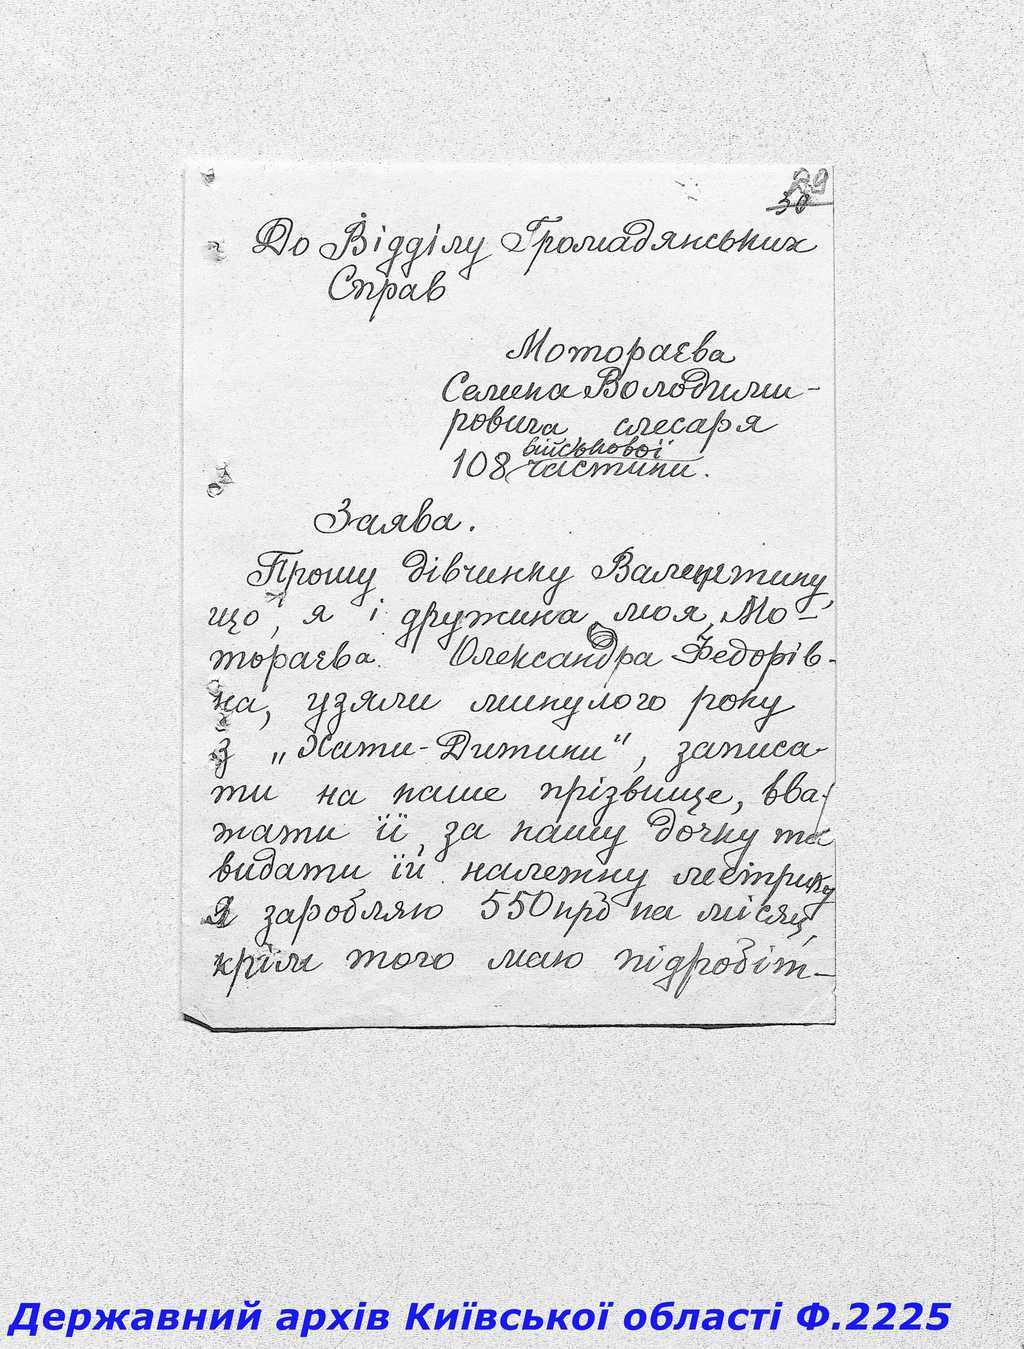 29
30
До Відділу Громадянських
Справ
Мотораєва
Семена Володими-
ровича слесаря
військової
108 частини.
Заява.
Прошу дівчинку Валентину,
що, я і дружина моя, Мо-
тораєва Олександра Федорів-
на, узяли минулого року
з „Хати-Дитини", записа-
ти на наше прізвище, вва-
жати її за нашу дочку та
видати їй належну метрику
Я заробляю 550 крб на місяц,
крім того маю підробіт-
Державний архів Київської області Ф.2225